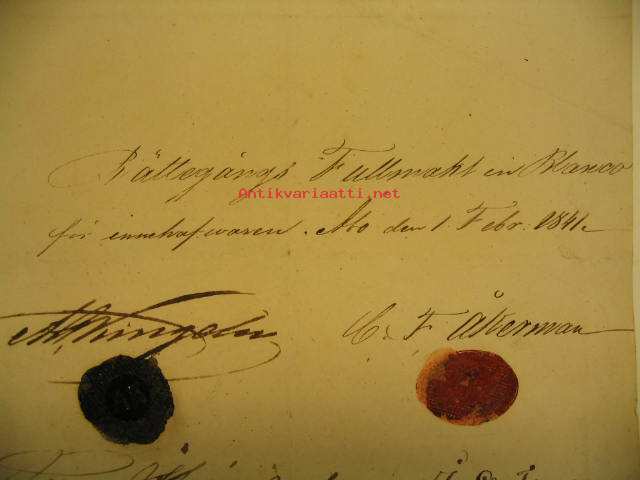 Rättegångs Fullmakt in Blanco
Antikvariaatti.net
för innehafwaren. Åbo den 1. Febr. 1841.
C. F. Åkerman